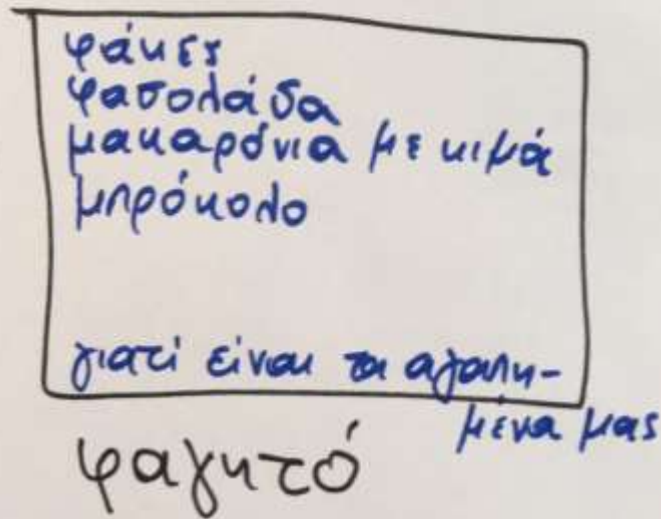 φάκες
φασολάδα
μακαρόνια με κιμά
μπρόκολο
γιατί είναι τα αγαπη-
μένα μας
φαγητό